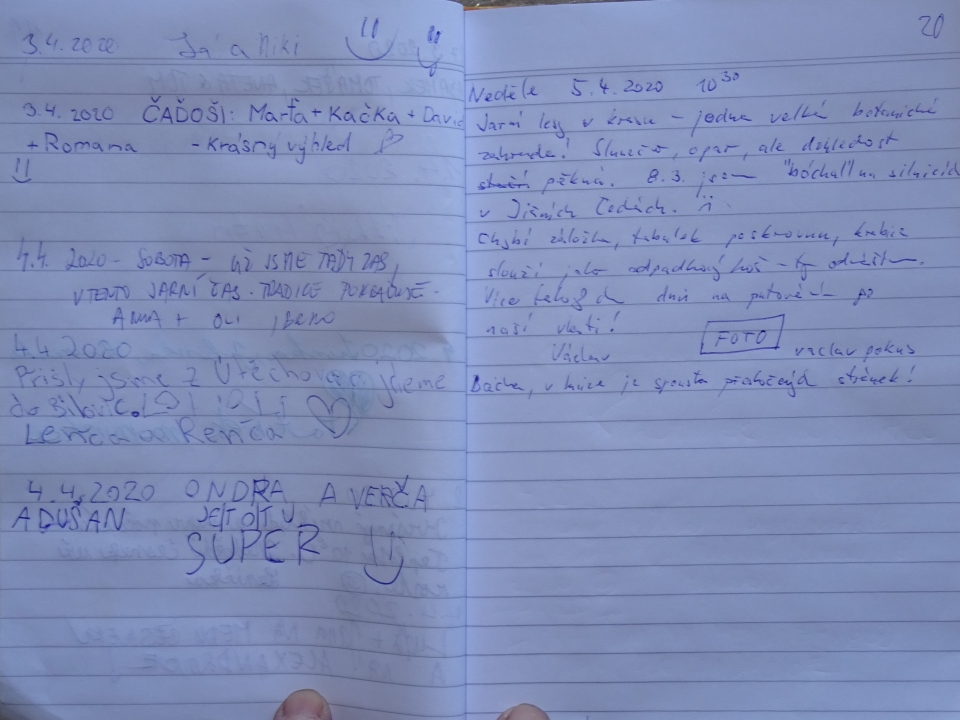 3.4.2020 Já a Niki
3.4.2020 ČAĎOŠI: Marťa + Kačka + David
+ Romana - Krásný výhled
4.4. 2020 - SOBOTA - UŽ JSME TADY ZAS,
V TENTO JARNÍ ČAS. TRADICE POKRAČUJE.
ANNA + OLI, BRNO
4.4.2020
Přišly jsme z Útěchova a jdeme
do Bílovic
Lenča a Renča
4.4.2020 ONDRA A VERČA
A DUŠAN JE TO TU
SUPER
20
Neděle 5.4.2020 10 30
Jarní lesy v krasu - jedna velká botanická
zahrada! Slunečno, opar, ale dohlednost
pěkná. 8.3. jsem "báchal" na silnicích
v Jižních Čechách.
Chybí záložka, tabulek poskrovnu, krabice
slouží jako odpadkový koš -
Více takových dnů na putování po
naší vlasti!
Václav FOTO vaclav pokus
Bácha, v knize je spousta přeskočených stránek!